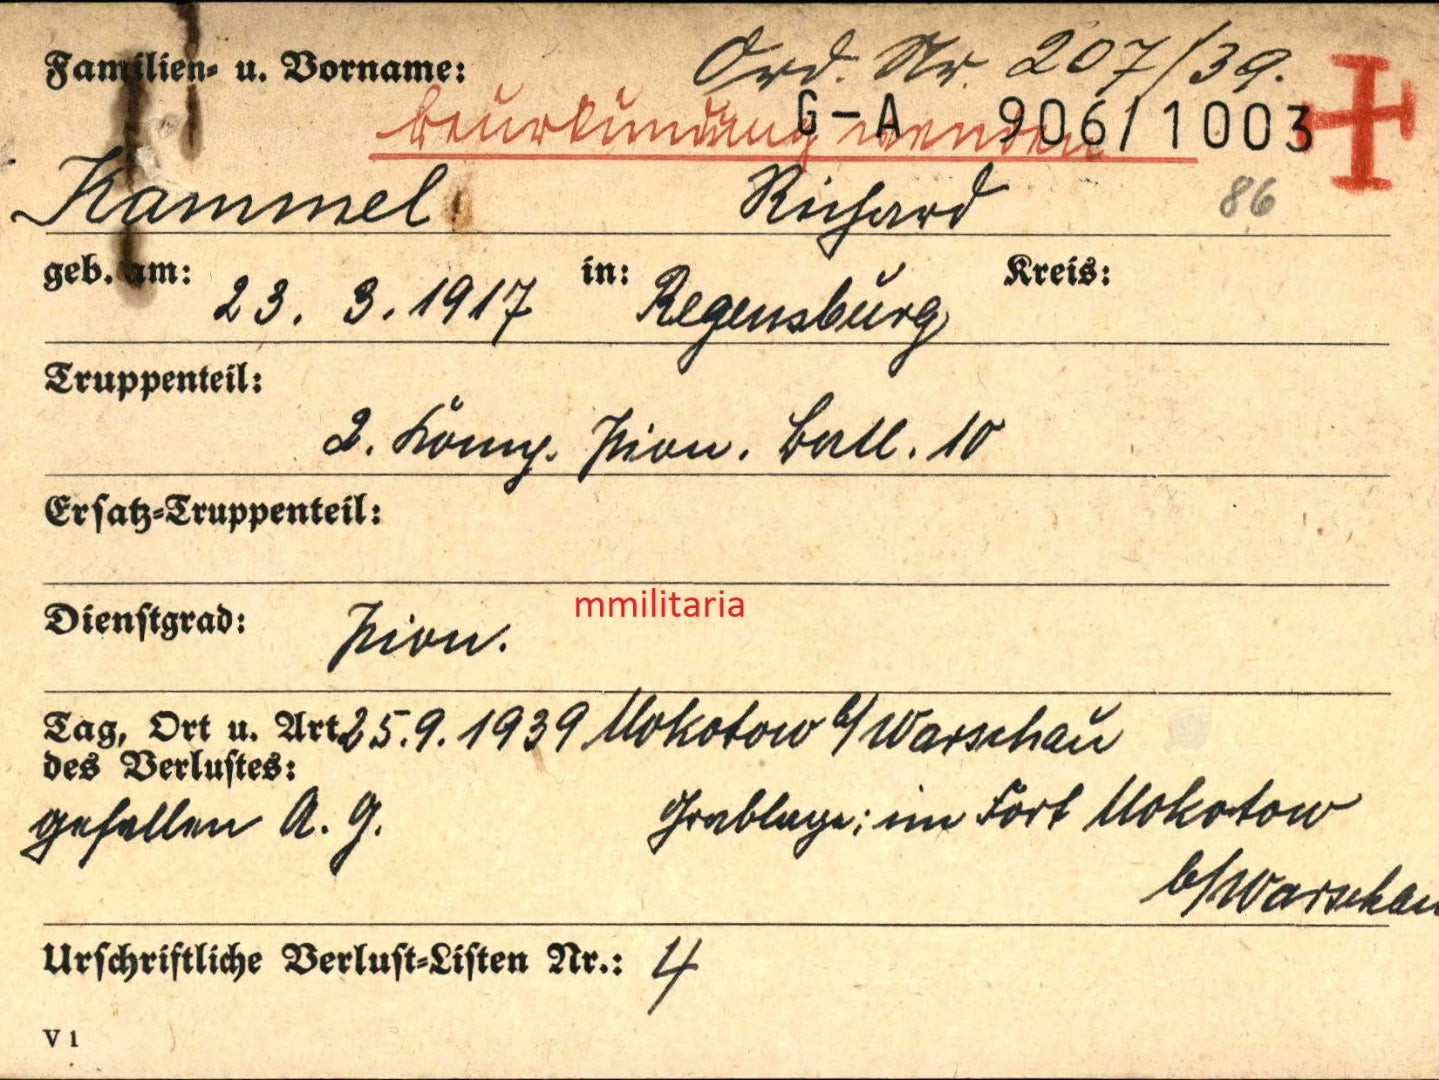 Familien- u. Vorname: Ord. Nr. 207/39.
Beurkundung wenden G-A 906/1003
Kammel Richard 86
geb. am: 23. 3. 1917 in: Regensburg Kreis:
Truppenteil:
2. Komp. Pion. Batl. 10
Ersatz-Truppenteil:
Dienstgrad: Pion.
mmilitaria
Tag, Ort u. Art 25.9.1939 Mokotow b/Warschau
des Verlustes:
gefallen A. G. Grablage: im Fort Mokotow
b/Warschau
Urschriftliche Verlust-Listen Nr.: 4
V 1